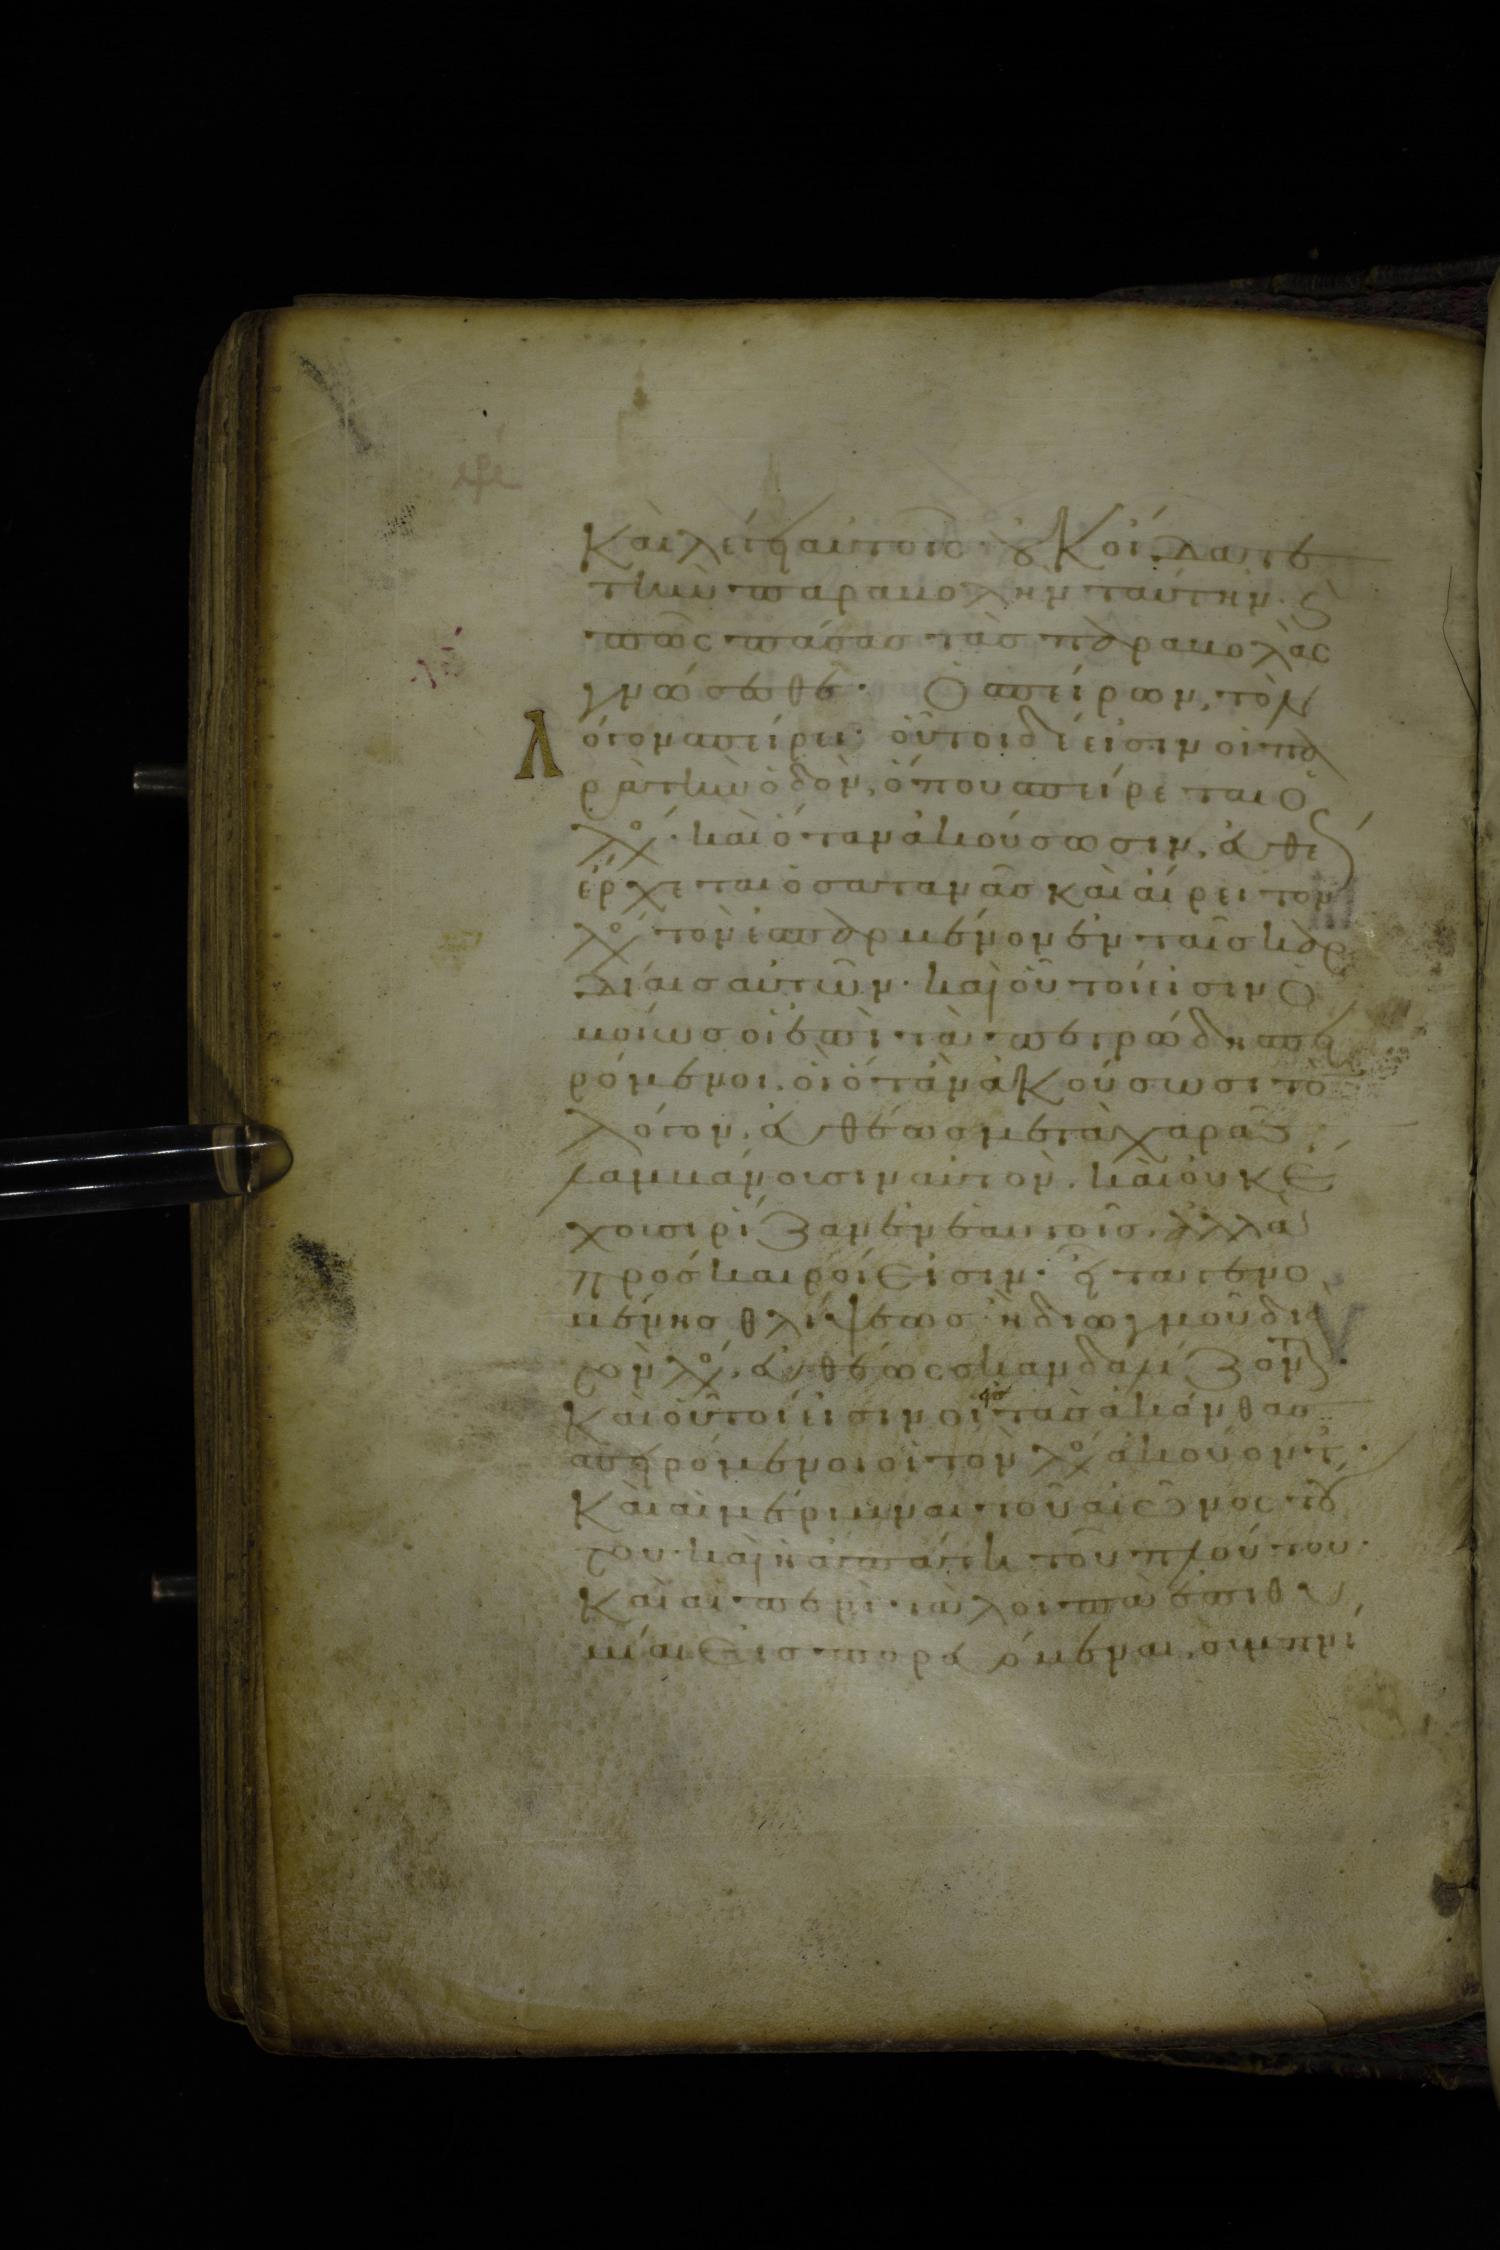 Καὶ λέγει αὐτοῖς· οὐκ οἴδατε
τὴν παραβολὴν ταύτην· καὶ
πῶς πάσας τὰς παραβολὰς
γνώσεσθε. Ὁ σπείρων, τὸν
λόγον σπείρει· οὗτοι δέ εἰσιν οἱ πα
ρὰ τὴν ὁδὸν, ὅπου σπείρεται ὁ
λόγος· καὶ ὅταν ἀκούσωσιν, εὐθὺς
ἔρχεται ὁ σατανᾶς καὶ αἴρει τὸν
λόγον τὸν ἐσπαρμένον ἐν ταῖς καρ
δίαις αὐτῶν· καὶ οὗτοί εἰσιν ὁ
μοίως οἱ ἐπὶ τὰ πετρώδη σπει
ρόμενοι· οἳ ὅταν ἀκούσωσι τὸν
λόγον, εὐθέως μετὰ χαρᾶς
λαμβάνουσιν αὐτόν· καὶ οὐκ ἔ
χουσι ῥίζαν ἐν ἑαυτοῖς· ἀλλὰ
πρόσκαιροί εἰσιν· εἶτα γενο
μένης θλίψεως ἢ διωγμοῦ διὰ
τὸν λόγον, εὐθέως σκανδαλίζονται·
Καὶ οὗτοί εἰσιν οἱ εἰς τὰς ἀκάνθας
σπειρόμενοι οἱ τὸν λόγον ἀκούοντες·
Καὶ αἱ μέριμναι τοῦ αἰῶνος τού
του· καὶ ἡ ἀπάτη τοῦ πλούτου·
Καὶ αἱ περὶ τὰ λοιπὰ ἐπιθυ
μίαι εἰσπορευόμεναι, συμπνί